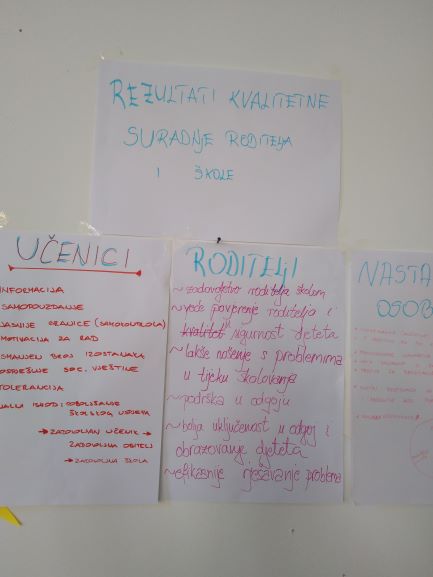 REZULTATI KVALITETNE
SURADNJE RODITELJA
I ŠKOLE
UČENICI
INFORMACIJA
SAMOPOUZDANJE
JASNIJE GRANICE (SAMOKONTROLA)
MOTIVACIJA ZA RAD
SMANJEN BROJ IZOSTANAKA
SOC. VJEŠTINE
TOLERANCIJA
ISHOD: POBOLJŠANJE
ŠKOLSKOG USPJEHA
→ ZADOVOLJAN UČENIK →
ZADOVOLJNA OBITELJ
→ ZADOVOLJNA ŠKOLA
RODITELJI
~ zadovoljstvo roditelja školom
~ veće povjerenje roditelja i
sigurnost djeteta
~ lakše nošenje s problemima
u tijeku školovanja
~ podrška u odgoju
~ bolja uključenost u odgoj i
obrazovanje djeteta
~ efikasnije rješavanje problema
NASTA
OSOB